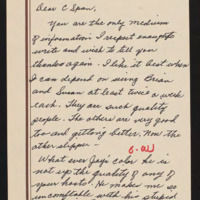 Dear C Span,
You are the only medium
of information I respect enough to
write and wish to tell you
thanks again. I like it best when
I can depend on seeing Brian
and Susan at least twice a week
each. They are such quality
people. The others are very good
too and getting better. Now the
other slipper -
What ever Jay's color he is
not up the quality of any of
your hosts. He makes me so
uncomfortable with his